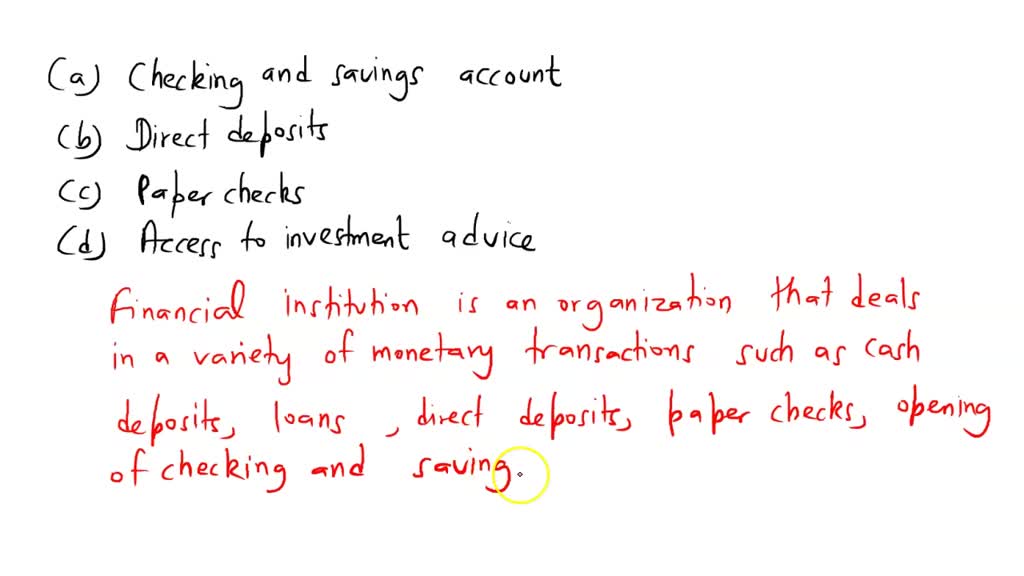 (a) Checking and savings account
(b) Direct deposits
(c) Paper checks
(d) Access to investment advice
Financial institution is an organization that deals
in a variety of monetary transactions such as cash
deposits, loans, direct deposits, paper checks, opening
of checking and saving.